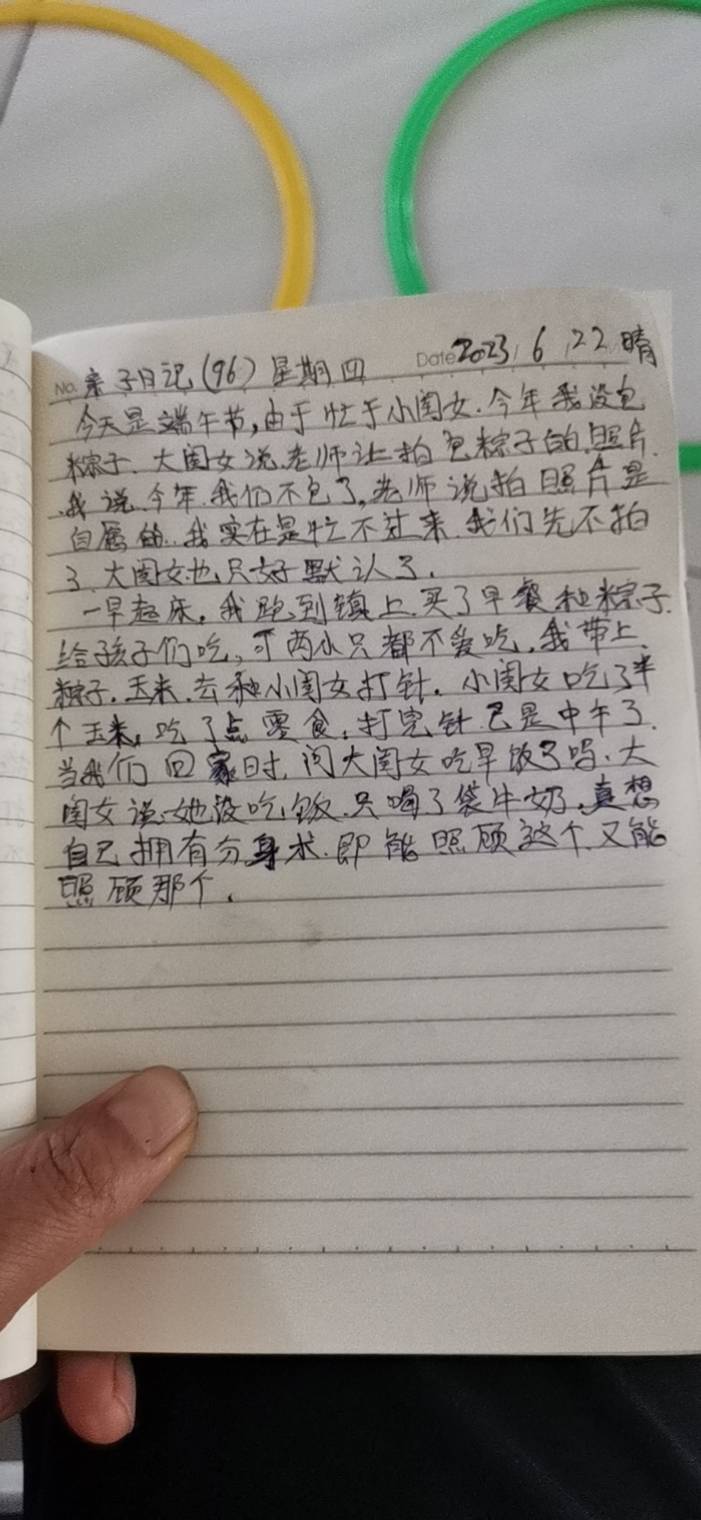 No. 亲子日记(96) 星期四 Date 2023, 6, 22 晴
今天是端午节,由于忙于小闺女.今年我没包
粽子.大闺女说老师让拍包粽子的照片.
我说.今年.我们不包了,老师说拍照片是
自愿的.我实在是忙不过来.我们先不拍
了.大闺女也只好默认了.
一早起床,我跑到镇上.买了早餐和粽子.
给孩子们吃,可两小只都不爱吃.我带上
粽子.玉米.去和小闺女打针.小闺女吃了半
个玉米,吃了点零食,打完针已是中午了.
当我们回家时,问大闺女吃早饭了吗.大
闺女说她没吃饭.只喝了袋牛奶.真想
自己拥有分身术.即能照顾这个.又能
照顾那个.